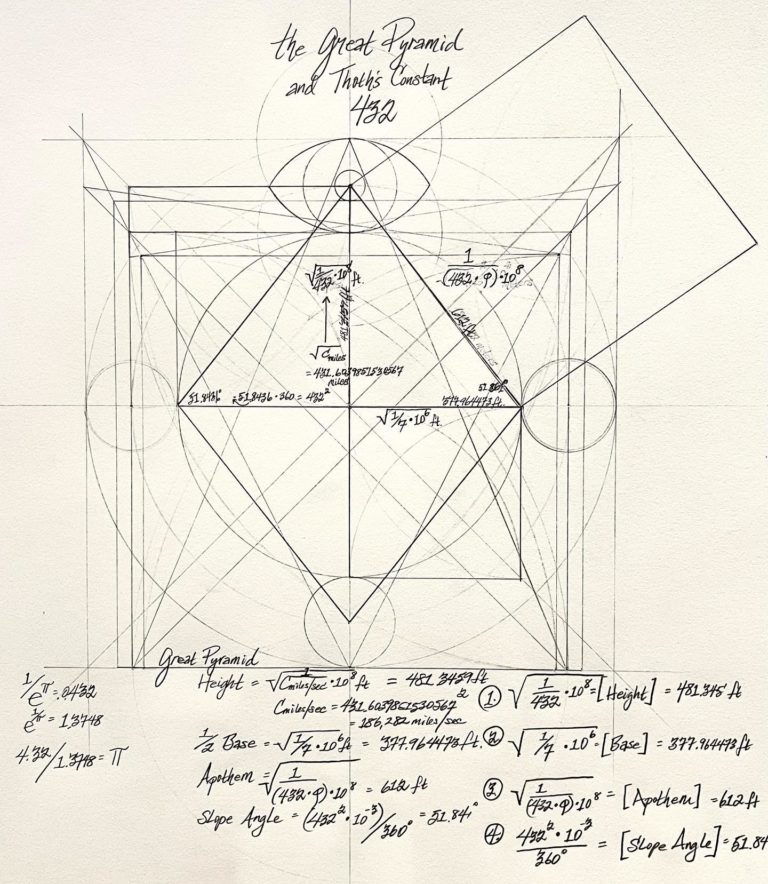 the Great Pyramid
and Thoth's Constant
432
√1/432 · 10⁸ ft.
481.3459 ft
√C miles
= 431.6039851530567
miles
1/(432 · φ) · 10⁸
612 ft
51.8436°
51.8436 · 360 = 432²
377.964473 ft.
√1/7 · 10⁶ ft.
Great Pyramid
Height = √1/C miles/sec · 10⁸ ft = 481.3459 ft
C miles/sec = 431.6039851530567²
= 186,282 miles/sec
1/2 Base = √1/7 · 10⁶ ft = 377.964473 ft.
Apothem = √1/(432 · φ) · 10⁸ = 612 ft
Slope Angle = (432² · 10⁻³)/360° = 51.84°
1/e^π = .0432
1.3748
4.32/1.3748 = π
① √1/432 · 10⁸ = [Height] = 481.345 ft
② √1/7 · 10⁶ = [Base] = 377.964473 ft
③ √1/(432 · φ) · 10⁸ = [Apothem] = 612 ft
④ 432² · 10⁻³/360° = [Slope Angle] = 51.84